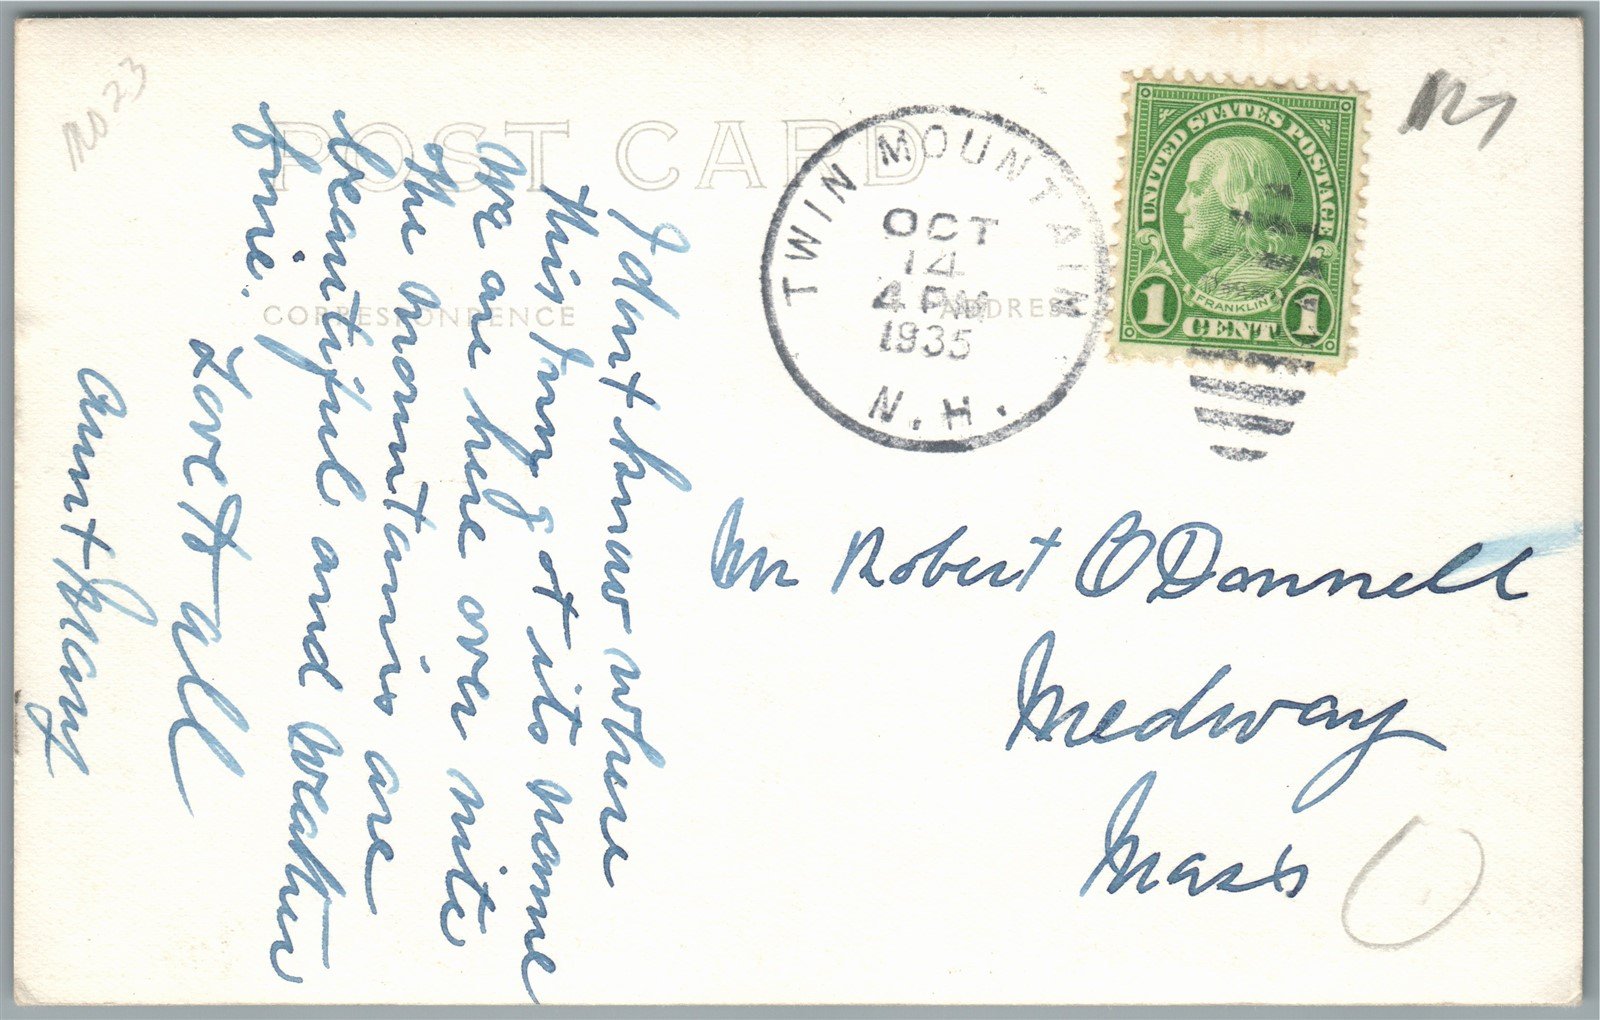 POST CARD
CORRESPONDENCE
ADDRESS
TWIN MOUNTAIN
OCT
14
4 PM
1935
N.H.
UNITED STATES POSTAGE
FRANKLIN
1 CENT 1
I dont know where
this is its name
We are here over nite
The mountains are
beautiful and weather
fine.
Love to all
Aunt Mary
Mr Robert O'Donnell
Medway
Mass